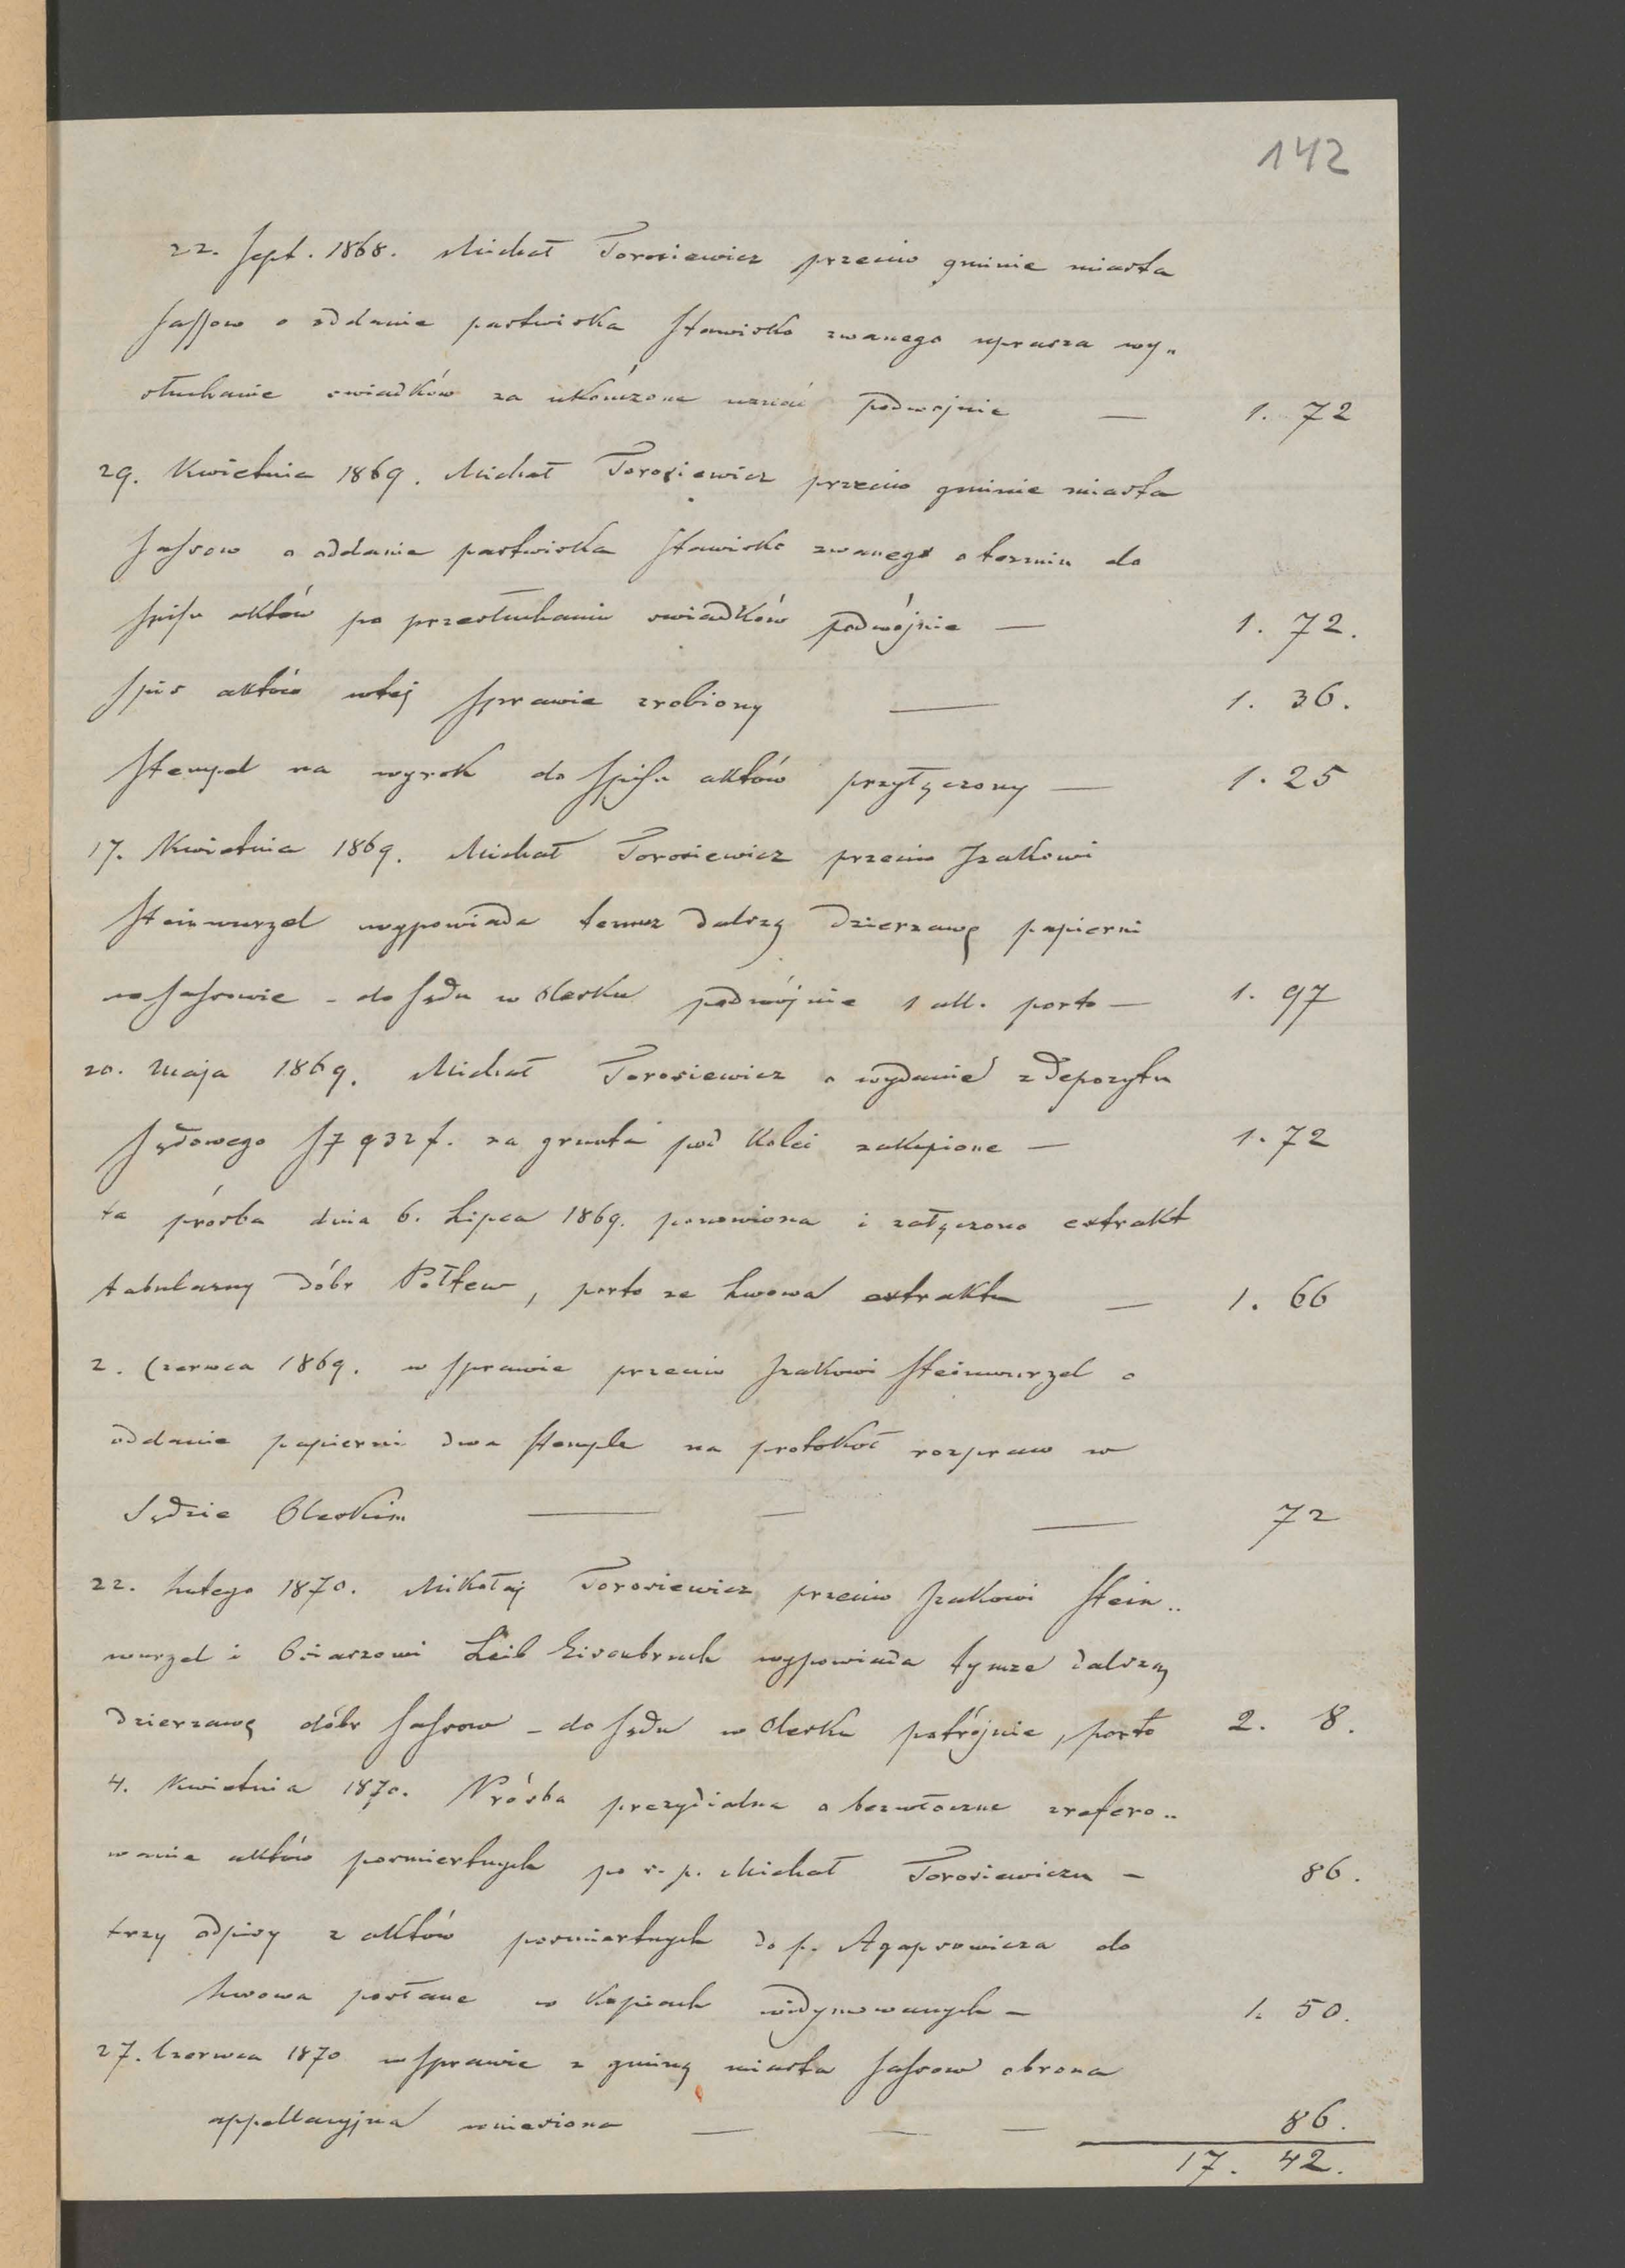 142
22. Sept. 1868. Michał Torosiewicz przeciw gminie miasta
Sassow o oddanie pastwiska Stawisko zwanego uprasza wy„
słuchanie swiadków za ukończone uznać podwojnie — 1. 72
29. Kwietnia 1869. Michał Torosiewicz przeciw gminie miasta
Sassow o oddanie pastwiska Stawisko zwanego o termin do
Spisu aktów po przesłuchaniu swiadków podwójnie — 1. 72.
Spis aktów wtej Sprawie zrobiony — 1. 36.
Stempel na wyrok do Spisu aktów przyłączony — 1. 25
17. Kwietnia 1869. Michał Torosiewicz przeciw Izakowi
Steinwurzel wypowiada temuz dalszą dzierzawę papierni
w Sassowie - do Sądu w Olesku podwójnie 1 all. porto — 1. 97
20. Maja 1869. Michał Torosiewicz o wydanie z depozytu
Sądowego 932 f. za grunta pod Kolei zakupione — 1. 72
ta prósba dnia 6. Lipca 1869. ponowiona i załączono extrakt
tabularny dóbr Półtew, porto ze Lwowa extraktu — 1. 66
2. Czerwca 1869. w Sprawie przeciw Izakowi Steinwurzel o
oddanie papierni dwa Stemple na protokoł rozpraw w
Sądzie Oleskim — — — 72
22. Lutego 1870. Mikołaj Torosiewicz przeciw Izakowi Stein„
wurzel i Osiaszowi Leib Eisenbruch wypowiada tymze dalszą
dzierzawę dóbr Sassow - do Sądu w Olesku potrójnie, porto 2. 8.
4. Kwietnia 1870. Prósba prezydialna o bezwłoczne zrefero„
wanie aktów posmiertnych po s. p. Michał Torosiewiczu — 86.
trzy odpisy z aktów posmiertnych do p. Agapsowicza do
Lwowa posłane w kopiach widymowanych — 1. 50.
27. Czerwca 1870 w Sprawie z gminą miasta Sassow obrona
appellacyjna wniesiona — — — 86.
17. 42.